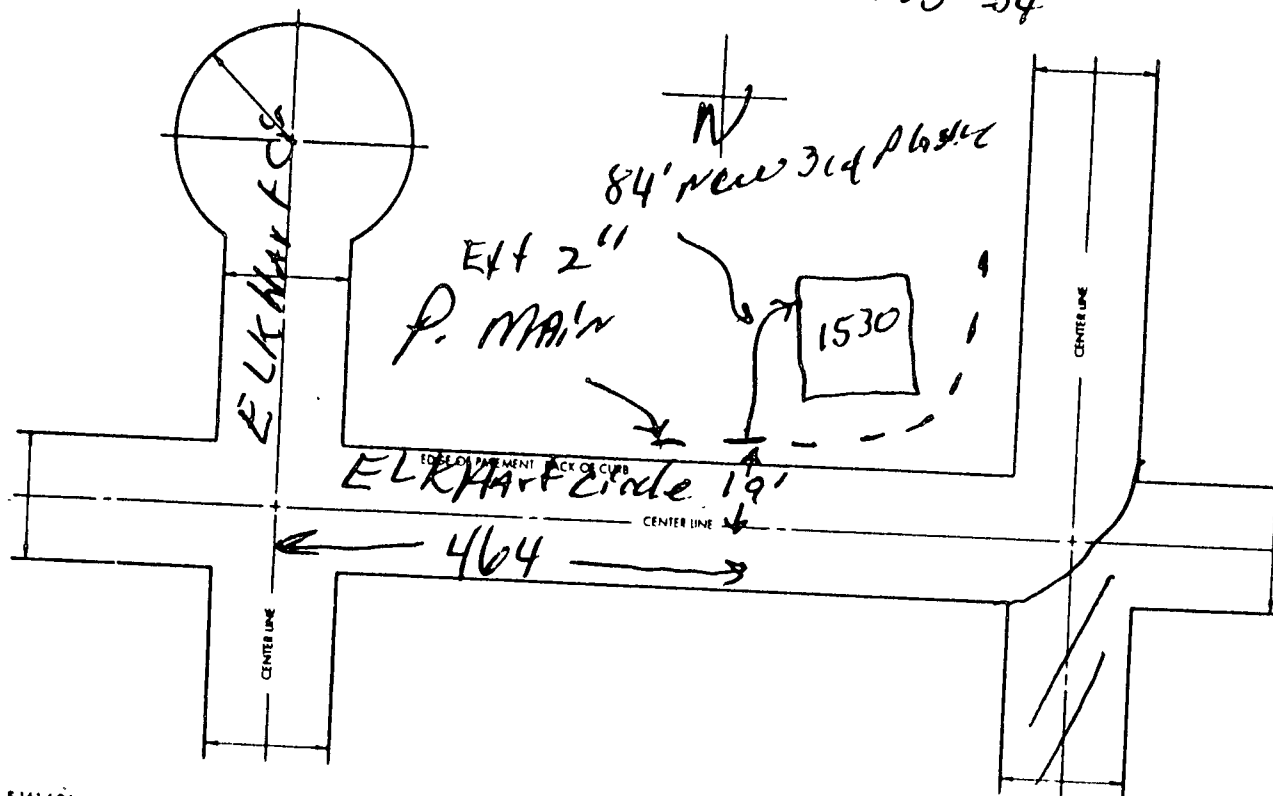 84' New 3/4 Plastic
Ext 2"
P. MAIN
1530
CENTER LINE
EDGE OF PAVEMENT BACK OF CURB
ELKHArt Circle 19'
CENTER LINE
464
CENTER LINE